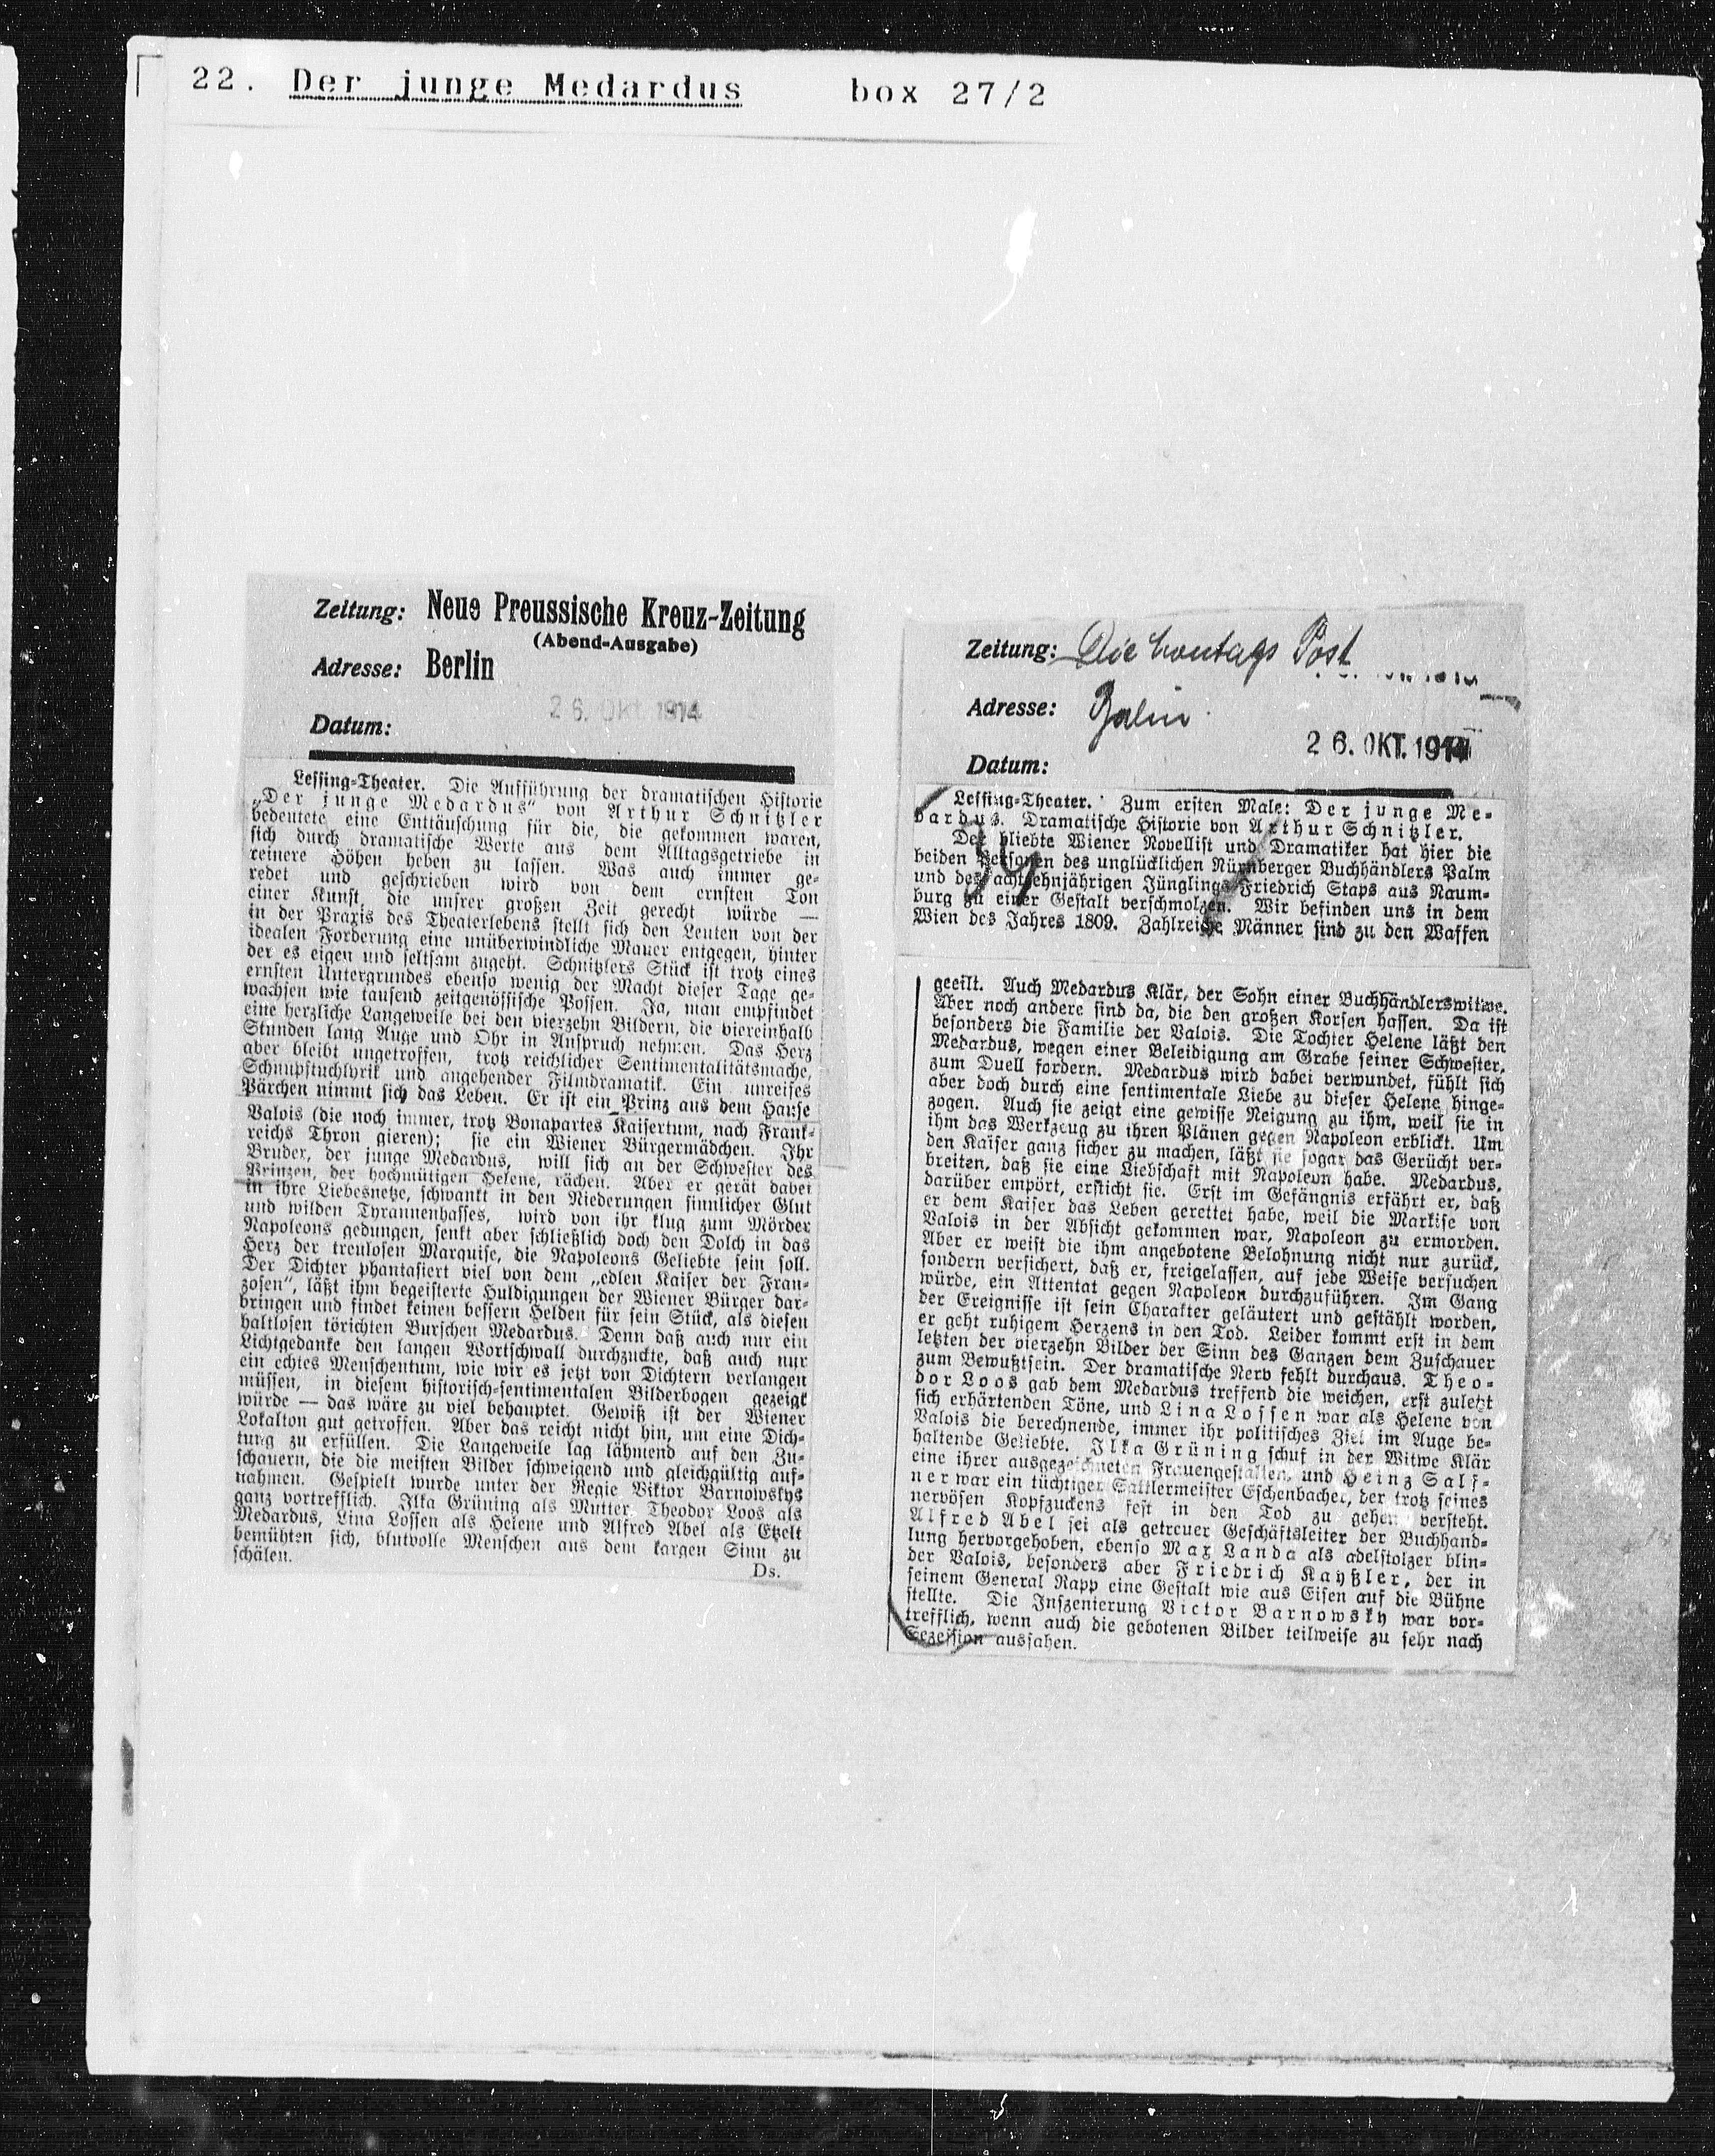 22. Der junge Medardus box 27/2
Zeitung: Neue Preussische Kreuz-Zeitung
(Abend-Ausgabe)
Adresse: Berlin
Datum: 26. Okt. 1914
Lessing-Theater. Die Aufführung der dramatischen Historie
„Der junge Medardus“ von Arthur Schnitzler
bedeutete eine Enttäuschung für die, die gekommen waren,
sich durch dramatische Werte aus dem Alltagsgetriebe in
reinere Höhen heben zu lassen. Was auch immer ge-
redet und geschrieben wird von dem ernsten Ton
einer Kunst, die unsrer großen Zeit gerecht würde —
in der Praxis des Theaterlebens stellt sich den Leuten von der
idealen Forderung eine unüberwindliche Mauer entgegen, hinter
der es eigen und seltsam zugeht. Schnitzlers Stück ist trotz eines
ernsten Untergrundes ebenso wenig der Macht dieser Tage ge-
wachsen wie tausend zeitgenössische Possen. Ja, man empfindet
eine herzliche Langeweile bei den vierzehn Bildern, die viereinhalb
Stunden lang Auge und Ohr in Anspruch nehmen. Das Herz
aber bleibt ungetroffen, trotz reichlicher Sentimentalitätsmache,
Schnupftuchlyrik und angehender Filmdramatik. Ein unreifes
Pärchen nimmt sich das Leben. Er ist ein Prinz aus dem Hause
Valois (die noch immer, trotz Bonapartes Kaisertum, nach Frank-
reichs Thron gieren); sie ein Wiener Bürgermädchen. Ihr
Bruder, der junge Medardus, will sich an der Schwester des
Prinzen, der hochmütigen Helene, rächen. Aber er gerät dabei
in ihre Liebesnetze, schwankt in den Niederungen sinnlicher Glut
und wilden Tyrannenhasses, wird von ihr klug zum Mörder
Napoleons gedungen, senkt aber schließlich doch den Dolch in das
Herz der treulosen Marquise, die Napoleons Geliebte sein soll.
Der Dichter phantasiert viel von dem „edlen Kaiser der Fran-
zosen“, läßt ihm begeisterte Huldigungen der Wiener Bürger dar-
bringen und findet keinen bessern Helden für sein Stück, als diesen
haltlosen törichten Burschen Medardus. Denn daß auch nur ein
Lichtgedanke den langen Wortschwall durchzuckte, daß auch nur
ein echtes Menschentum, wie wir es jetzt von Dichtern verlangen
müssen, in diesem historisch-sentimentalen Bilderbogen gezeigt
würde — das wäre zu viel behauptet. Gewiß ist der Wiener
Lokalton gut getroffen. Aber das reicht nicht hin, um eine Dich-
tung zu erfüllen. Die Langeweile lag lähmend auf den Zu-
schauern, die die meisten Bilder schweigend und gleichgültig auf-
nahmen. Gespielt wurde unter der Regie Viktor Barnowskys
ganz vortrefflich. Ilka Grüning als Mutter, Theodor Loos als
Medardus, Lina Lossen als Helene und Alfred Abel als Etzelt
bemühten sich, blutvolle Menschen aus dem kargen Sinn zu
schälen.
Ds.
Zeitung: Die Sontags Post
Adresse: Berlin
Datum: 26. OKT. 1914
Lessing-Theater. Zum ersten Male: Der junge Me-
dardus. Dramatische Historie von Arthur Schnitzler.
Der bliebte Wiener Novellist und Dramatiker hat hier die
beiden Personen des unglücklichen Nürnberger Buchhändlers Palm
und des achtzehnjährigen Jünglings Friedrich Staps aus Naum-
burg zu einer Gestalt verschmolzen. Wir befinden uns in dem
Wien des Jahres 1809. Zahlreiche Männer sind zu den Waffen
geeilt. Auch Medardus Klär, der Sohn einer Buchhändlerswitwe.
Aber noch andere sind da, die den großen Korsen hassen. Da ist
besonders die Familie der Valois. Die Tochter Helene läßt den
Medardus, wegen einer Beleidigung am Grabe seiner Schwester,
zum Duell fordern. Medardus wird dabei verwundet, fühlt sich
aber doch durch eine sentimentale Liebe zu dieser Helene hinge-
zogen. Auch sie zeigt eine gewisse Neigung zu ihm, weil sie in
ihm das Werkzeug zu ihren Plänen gegen Napoleon erblickt. Um
den Kaiser ganz sicher zu machen, läßt sie sogar das Gerücht ver-
breiten, daß sie eine Liebschaft mit Napoleon habe. Medardus,
darüber empört, ersticht sie. Erst im Gefängnis erfährt er, daß
er dem Kaiser das Leben gerettet habe, weil die Markise von
Valois in der Absicht gekommen war, Napoleon zu ermorden.
Aber er weist die ihm angebotene Belohnung nicht nur zurück,
sondern versichert, daß er, freigelassen, auf jede Weise versuchen
würde, ein Attentat gegen Napoleon durchzuführen. Im Gang
der Ereignisse ist sein Charakter geläutert und gestählt worden,
er geht ruhigem Herzens in den Tod. Leider kommt erst in dem
letzten der vierzehn Bilder der Sinn des Ganzen dem Zuschauer
zum Bewußtsein. Der dramatische Nerv fehlt durchaus. Theo-
dor Loos gab dem Medardus treffend die weichen, erst zuletzt
sich erhärtenden Töne, und Lina Lossen war als Helene von
Valois die berechnende, immer ihr politisches Ziel im Auge be-
haltende Geliebte. Ilka Grüning schuf in der Witwe Klär
eine ihrer ausgezeichneten Frauengestalten, und Heinz Salf-
ner war ein tüchtiger Sattlermeister Eschenbacher, der trotz seines
nervösen Kopfzuckens fest in den Tod zu gehen versteht.
Alfred Abel sei als getreuer Geschäftsleiter der Buchhand-
lung hervorgehoben, ebenso Max Landa als adelstolzer blin-
der Valois, besonders aber Friedrich Kayßler, der in
seinem General Rapp eine Gestalt wie aus Eisen auf die Bühne
stellte. Die Inszenierung Victor Barnowsky war vor-
trefflich, wenn auch die gebotenen Bilder teilweise zu sehr nach
Sezession aussahen.